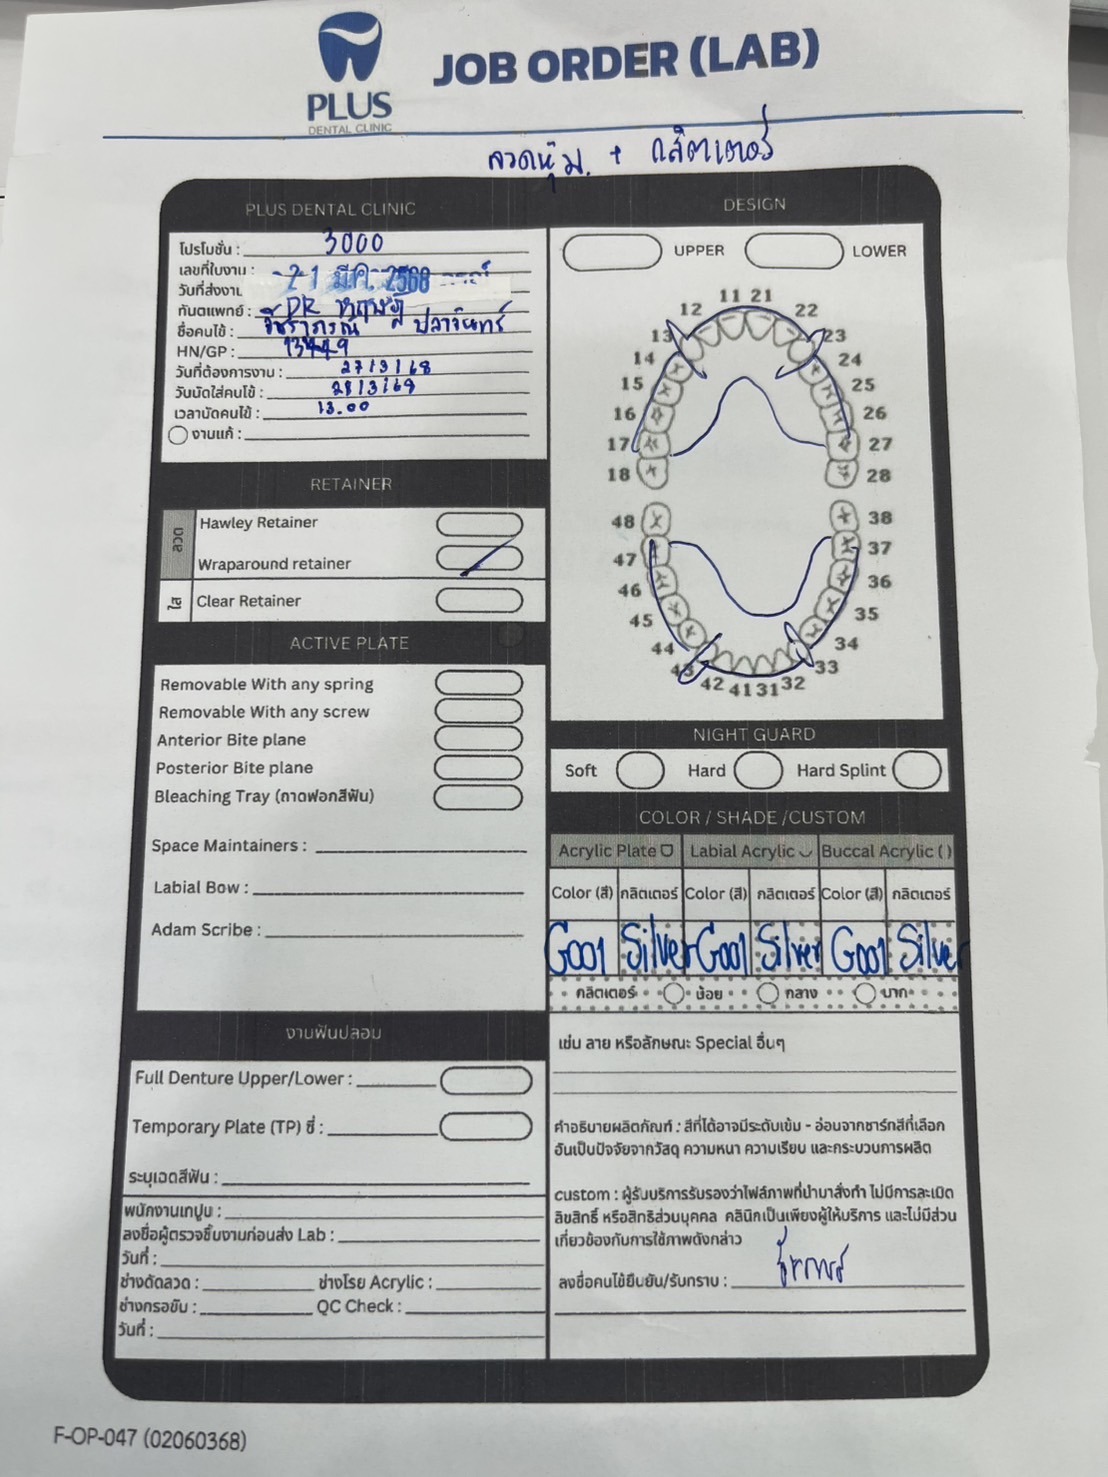 PLUS
DENTAL CLINIC
JOB ORDER (LAB)
ลวดหุ้ม + กลิตเตอร์
PLUS DENTAL CLINIC
โปรโมชั่น : 3000
เลขที่ใบงาน :
วันที่ส่งงาน 21 มี.ค. 2568
ทันตแพทย์ : DR
ชื่อคนไข้ : ปลาจันทร์
HN/GP : 13449
วันที่ต้องการงาน : 27/3/68
วันนัดใส่คนไข้ : 28/3/68
เวลานัดคนไข้ : 13.00
งานแก้ :
RETAINER
ลวด
Hawley Retainer
Wraparound retainer
ใส
Clear Retainer
ACTIVE PLATE
Removable With any spring
Removable With any screw
Anterior Bite plane
Posterior Bite plane
Bleaching Tray (ถาดฟอกสีฟัน)
Space Maintainers :
Labial Bow :
Adam Scribe :
งานฟันปลอม
Full Denture Upper/Lower :
Temporary Plate (TP) ซี่ :
ระบุเฉดสีฟัน :
พนักงานเทปูน :
ลงชื่อผู้ตรวจชิ้นงานก่อนส่ง Lab :
วันที่ :
ช่างดัดลวด : ช่างโรย Acrylic :
ช่างกรอขัด : QC Check :
วันที่ :
DESIGN
UPPER LOWER
11 21
12 22
13 23
14 24
15 25
16 26
17 27
18 28
48 38
47 37
46 36
45 35
44 34
43 33
42 41 31 32
NIGHT GUARD
Soft Hard Hard Splint
COLOR / SHADE /CUSTOM
Acrylic Plate Labial Acrylic Buccal Acrylic ( )
Color (สี) กลิตเตอร์ Color (สี) กลิตเตอร์ Color (สี) กลิตเตอร์
G001 Silver G001 Silver G001 Silver
กลิตเตอร์ น้อย กลาง มาก
เช่น ลาย หรือลักษณะ Special อื่นๆ
คำอธิบายผลิตภัณฑ์ : สีที่ได้อาจมีระดับเข้ม - อ่อนจากชาร์ทสีที่เลือก
อันเป็นปัจจัยจากวัสดุ ความหนา ความเรียบ และกระบวนการผลิต
custom : ผู้รับบริการรับรองว่าไฟล์ภาพที่นำมาสั่งทำ ไม่มีการละเมิด
ลิขสิทธิ์ หรือสิทธิส่วนบุคคล คลินิกเป็นเพียงผู้ให้บริการ และไม่มีส่วน
เกี่ยวข้องกับการใช้ภาพดังกล่าว
ลงชื่อคนไข้ยืนยัน/รับทราบ :
F-OP-047 (02060368)